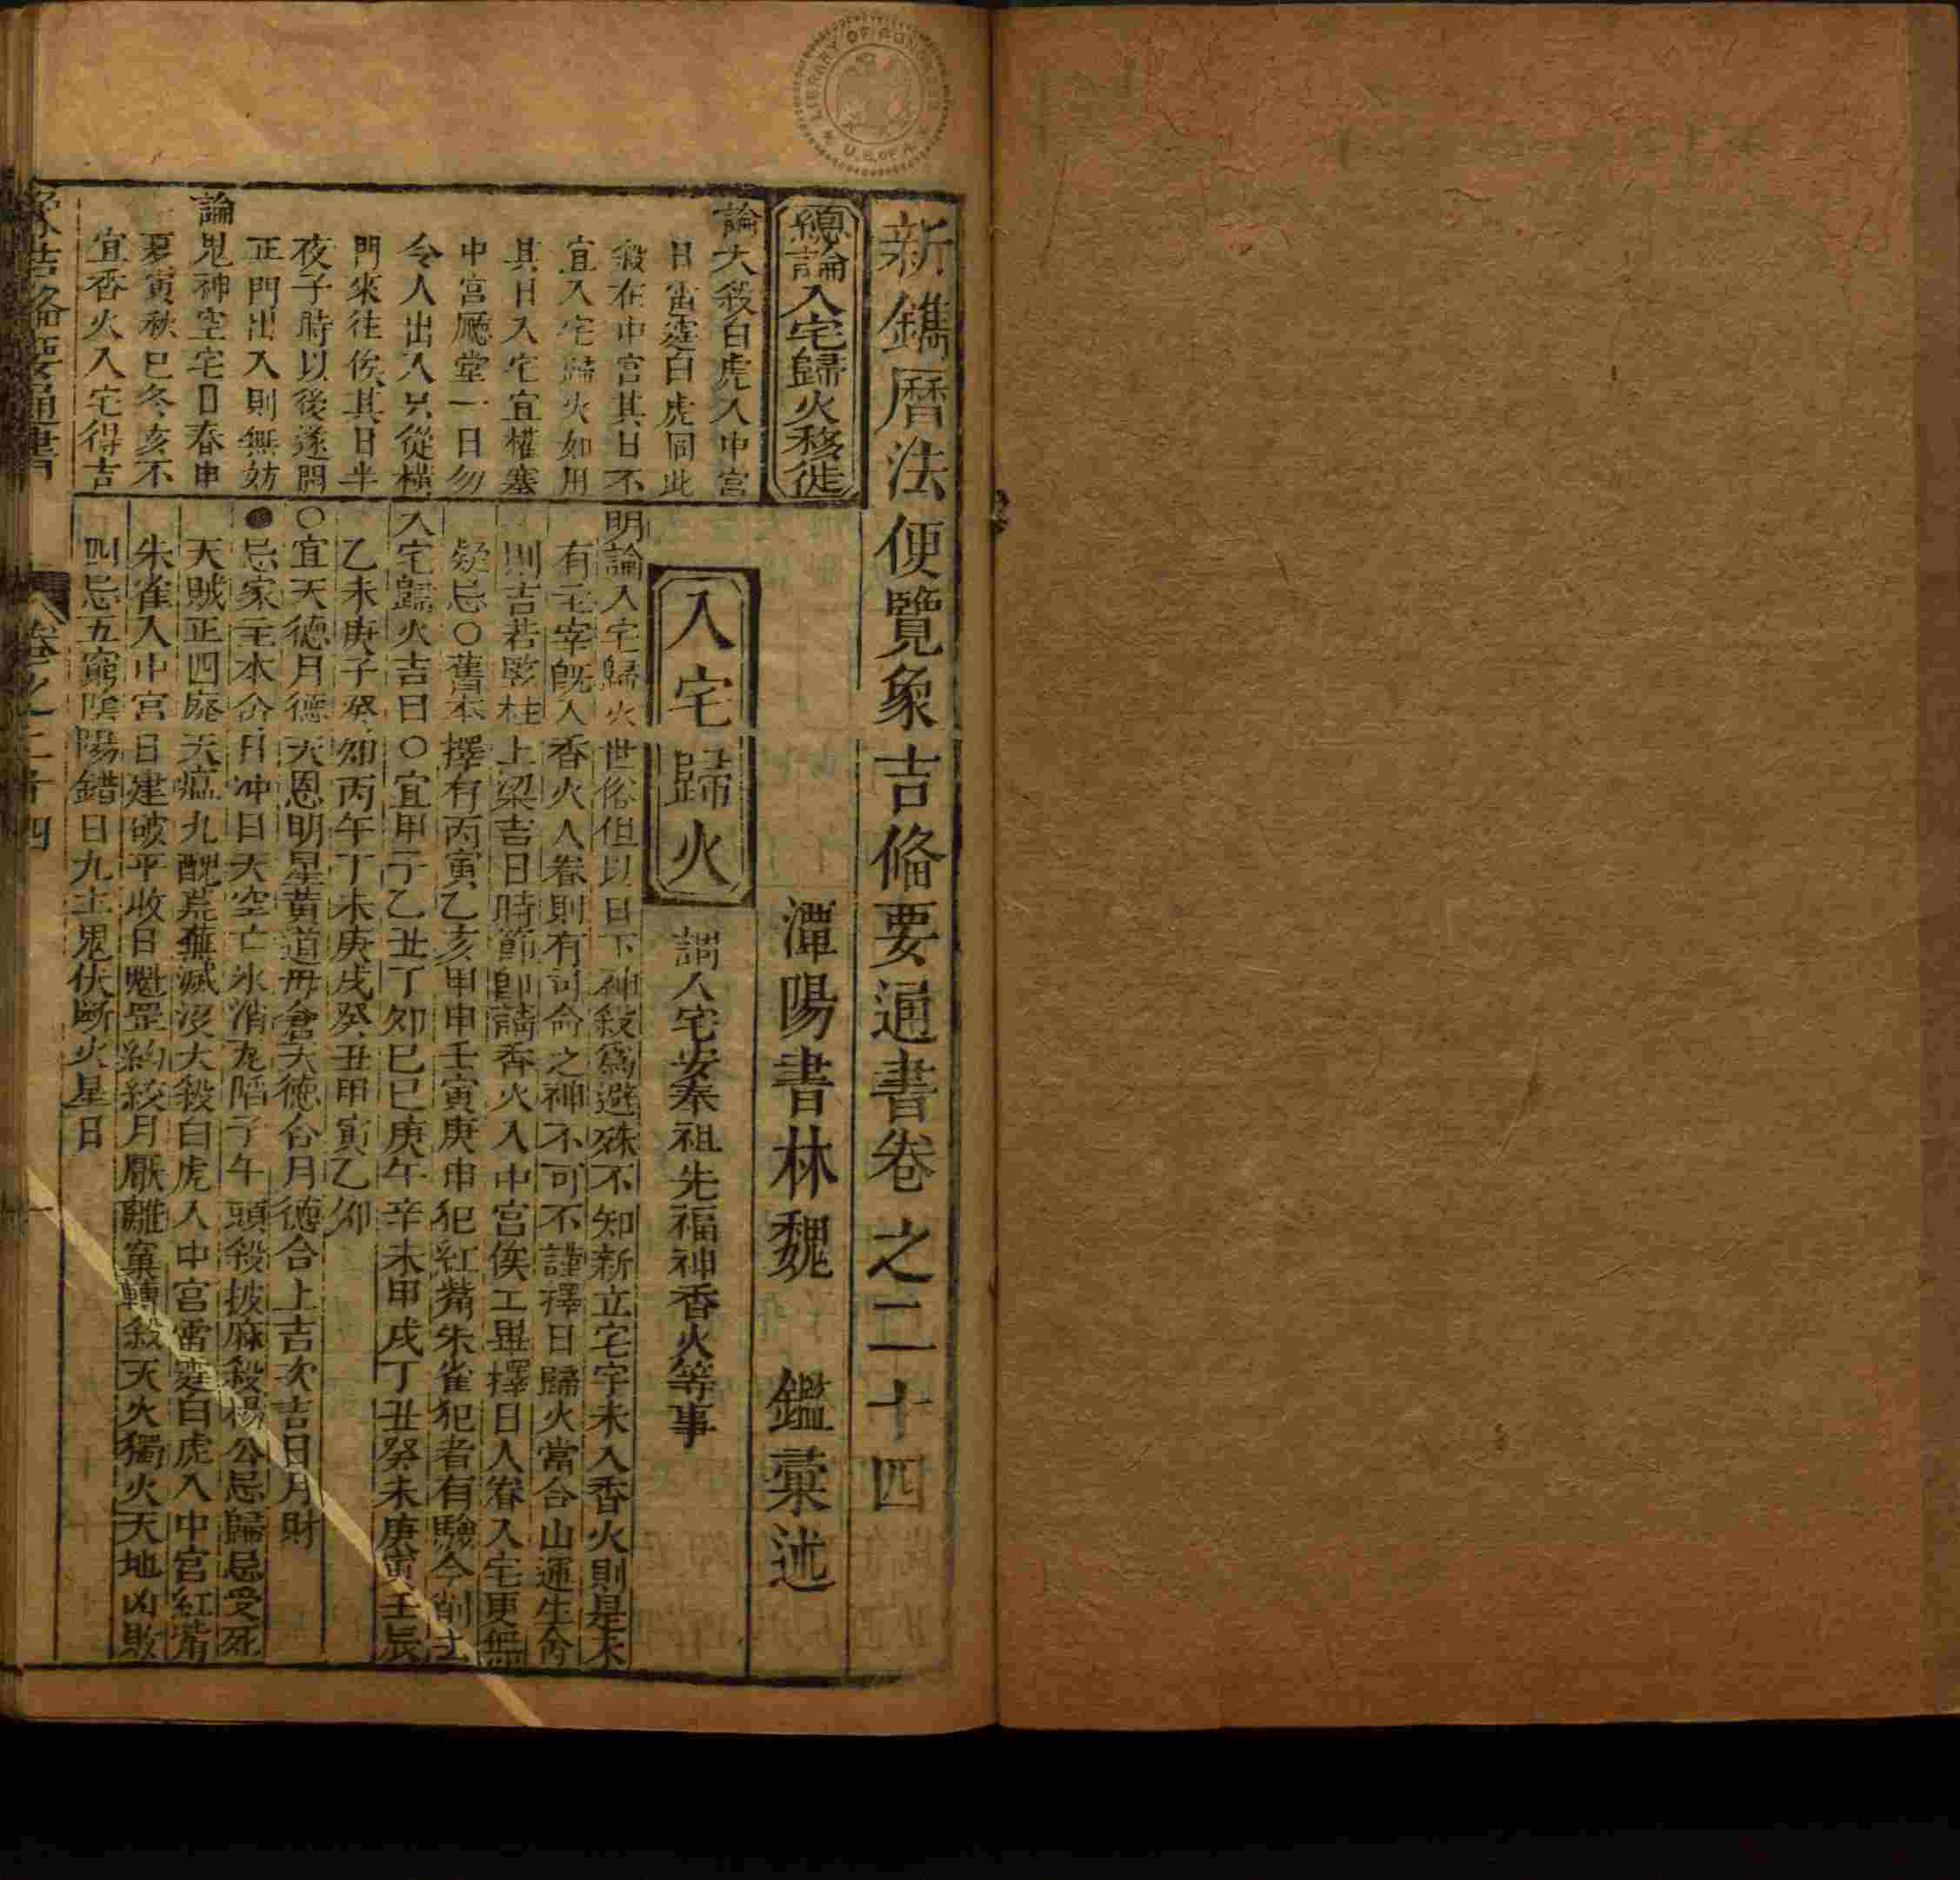 新鐫曆法便覽象吉俻要通書卷之二十四
潭陽書林魏 鑑彙述
總論入宅歸火移徙
論大殺白虎入中宮
日雷霆白虎同此
殺在中宮其日不
宜入宅歸火如用
其日入宅宜權塞
中宮廳堂一日勿
令人出入只從橫
門來往俟其日半
夜子時以後遂開
正門出入則無妨
論鬼神空宅日春申
夏寅秋巳冬亥不
宜香火入宅得吉
入宅歸火 謂入宅安奉祖先福神香火等事
明論入宅歸火世俗但以日下神殺爲避殊不知新立宅宇未入香火則是未
有主宰旣入香火人眷則有司命之神不可不謹擇日歸火當合山運生命
則吉若竪柱上梁吉日時節卽請香火入中宮俟工畢擇日人眷入宅更無
疑忌○舊本擇有丙寅乙亥甲申壬寅庚申犯紅觜朱雀犯者有驗今削去
入宅歸火吉日○宜甲子乙丑丁卯己巳庚午辛未甲戌丁丑癸未庚寅壬辰
乙未庚子癸卯丙午丁未庚戌癸丑甲寅乙卯
○宜天德月德天恩明星黃道毋倉天德合月德合上吉次吉日月財
●忌家主本命日冲日天空亡氷消瓦陷子午頭殺披麻殺楊公忌歸忌受死
天賊正四廢天瘟九醜荒蕪滅沒大殺白虎入中宮雷霆白虎入中宮紅觜
朱雀入中宮日建破平收日魁罡勾絞月厭離窠轉殺天火獨火天地凶敗
四忌五窮陰陽錯日九土鬼伏斷火星日
象吉俻要通書 卷之二十四 一
LIBRARY OF CONGRESS U.S. OF A.